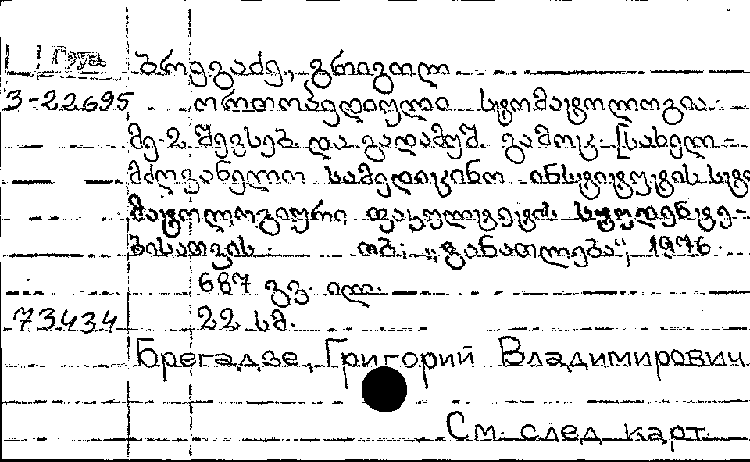 Груз. ბრეგაძე, გრიგოლ
3-22695 ორთოპედიული სტომატოლოგია.
მე-2 შევსებ. და გადამუშ. გამოც. [სახელ-
მძღვანელო სამედიცინო ინსტიტუტის სტო
მატოლოგიური ფაკულტეტის სტუდენტე-
ბისათვის. თბ., „განათლება“, 1976.
687 გვ. ილ.
73434 22 სმ.
Брегадзе, Григорий Владимирович
См. след. карт.